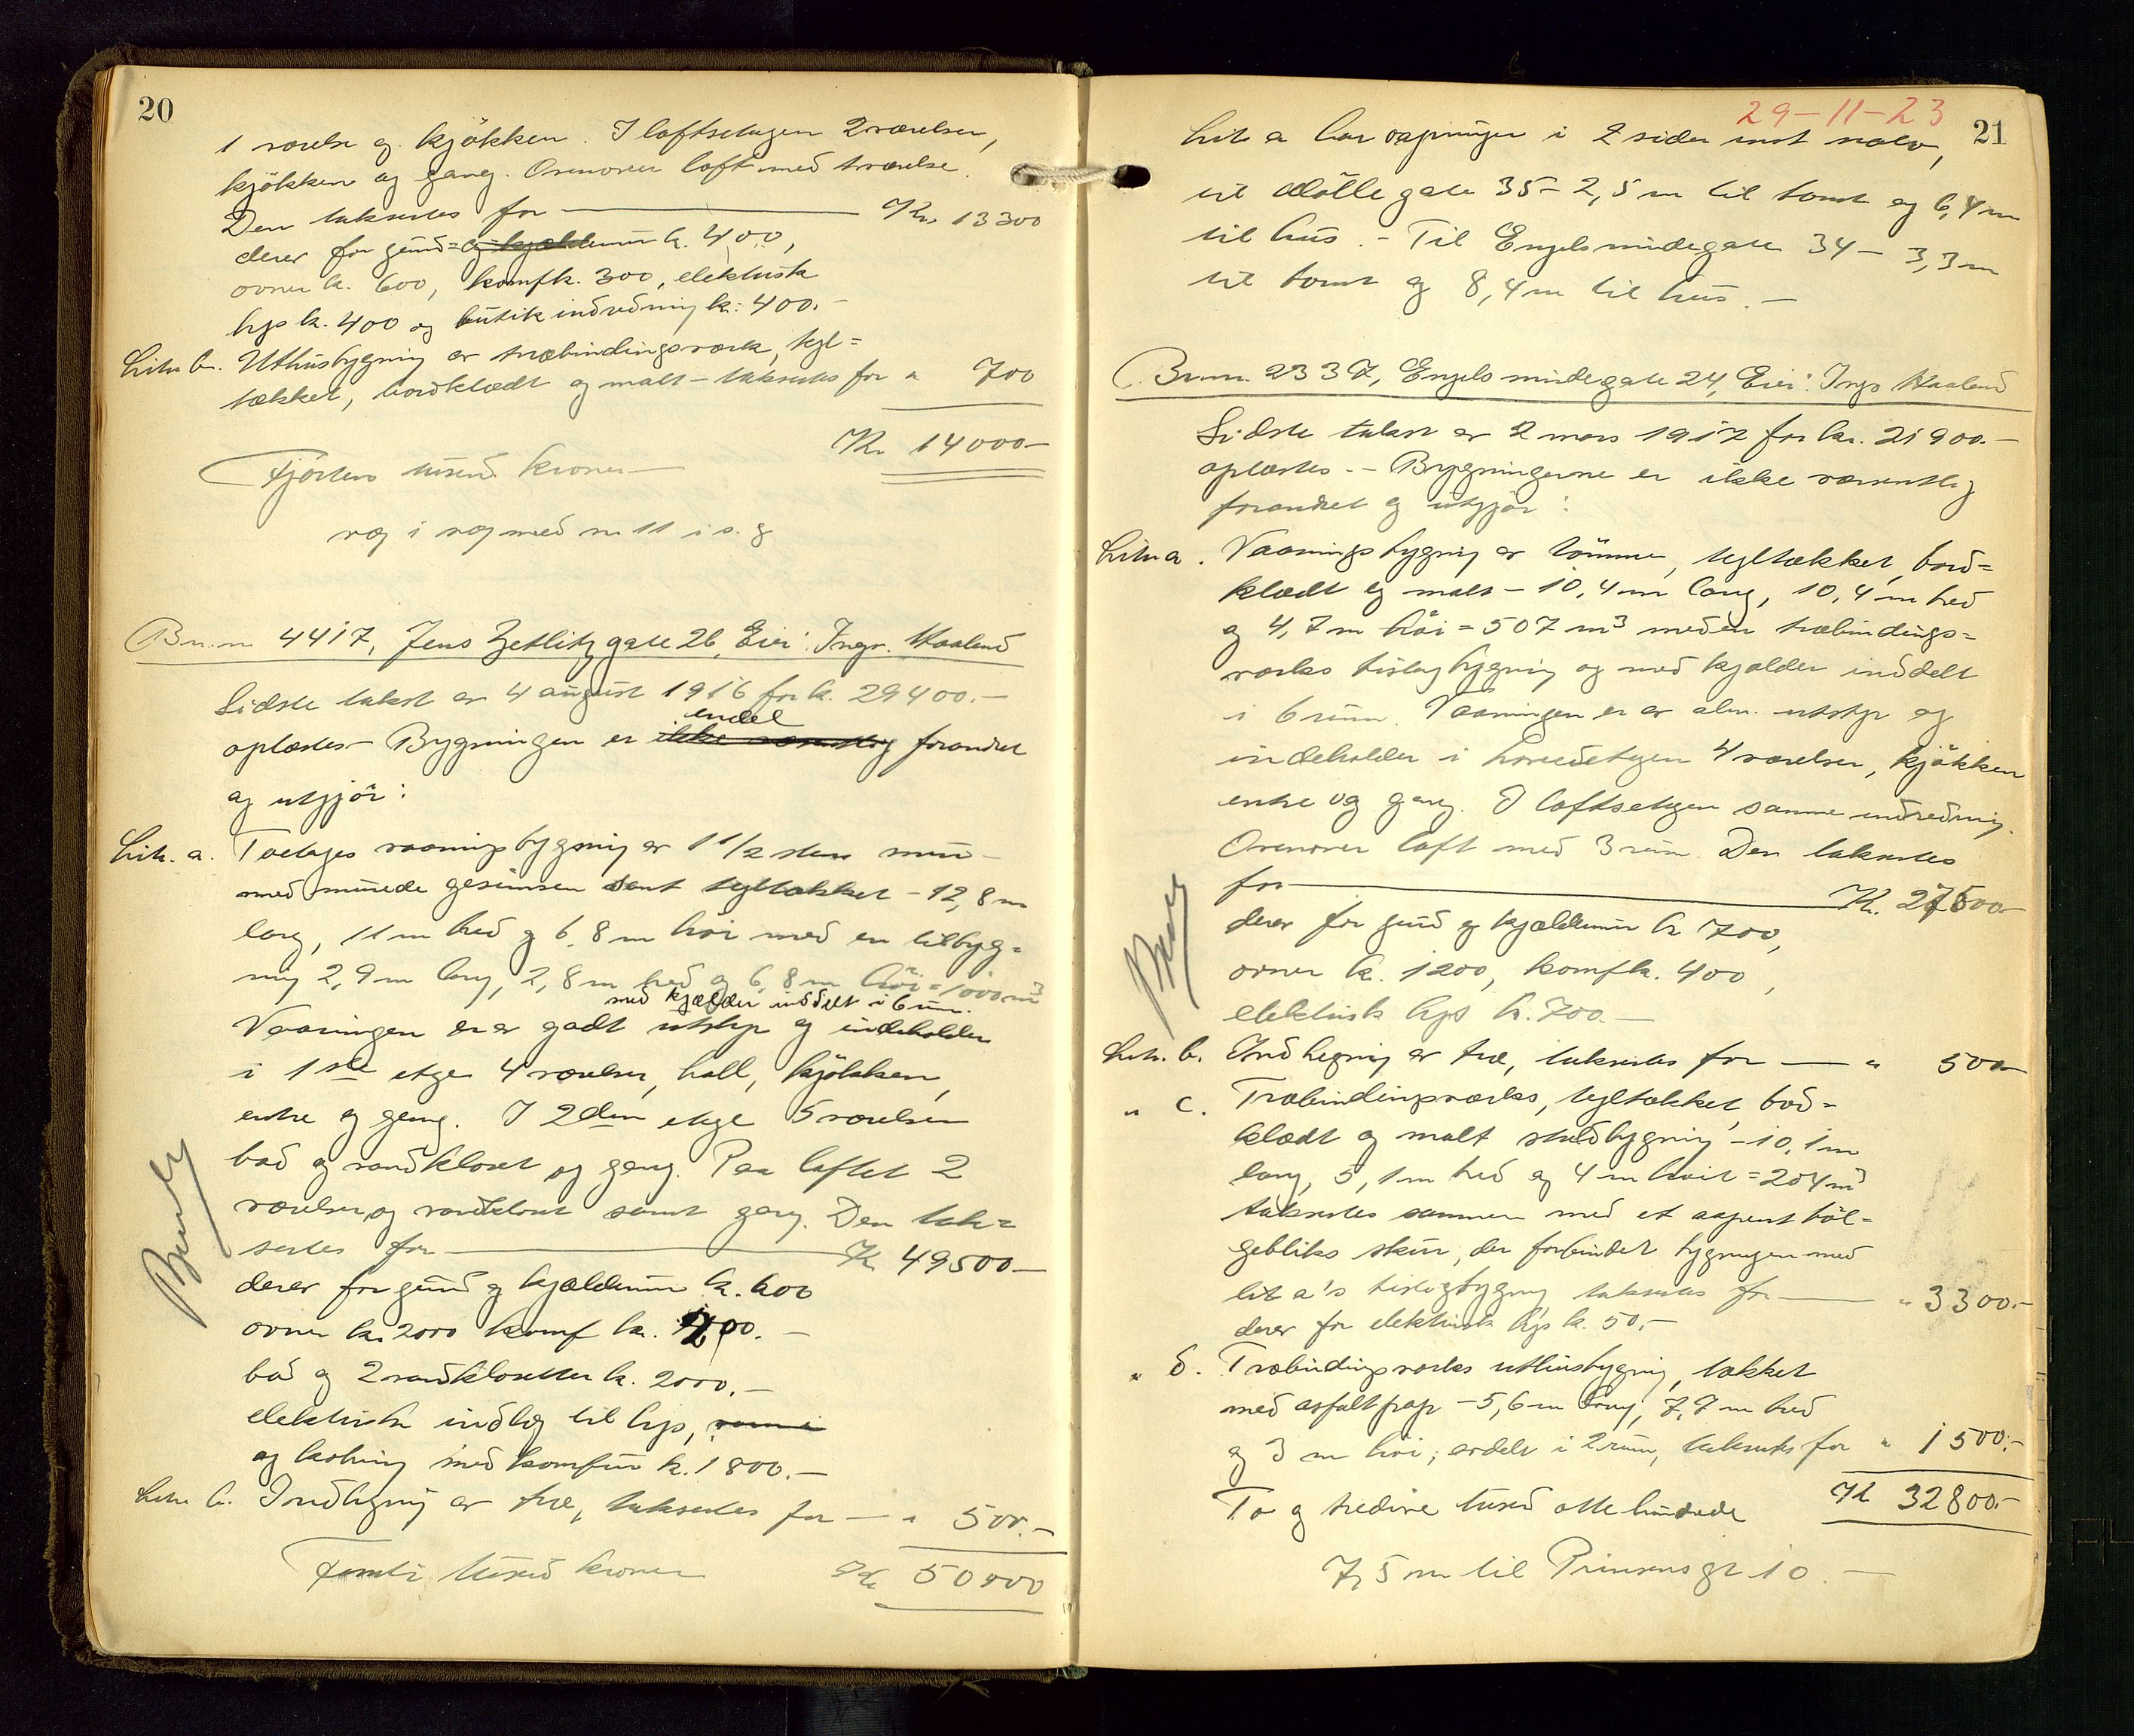 20
1 værelse og kjökken. I loftsetagen 2 værelser,
kjökken og gang. Ovenover loft med 1 værelse.
Den takseres for — Kr. 13300
derav for grund= og kjældermur k. 400,
ovner k. 600, komf k. 300, elektrisk
lys k. 400 og butikindredning k: 400.-
Litr b. Uthusbygning av træbindingsværk, tegl=
tækket, bordklædt og malt - takseres for " 700
Kr 14000-
Fjorten tusend kroner
væg i væg med nr 11 i s. g
Br.nr. 4417, Jens Zetlitz gate 26, Eier: Ingv. Haaland
Sidste takst av 4 august 1916 for k. 29400.-
endel
oplæstes - Bygningen er ikke væsentlig forandret
og utgjör:
Litr. a. Toetages vaaningsbygning av 1 1/2 stens mur
med murede gesimser samt tegltækket - 12,8 m
lang, 11 m bred og 6,8 m höi med en tilbyg=
ning 2,9 m lang, 2,8 m bred og 6,8 m höi = 1000 m3
med kjælder inddelt i 6 rum.
Vaaningen er av godt utstyr og indeholder
i 1ste etage 4 værelser, hall, kjökken,
entre og gang. I 2den etage 5 værelser
bad og vandkloset og gang. Paa loftet 2
værelser og vandkloset samt gang. Den tak=
seres for — Kr 49500-
derav for grund og kjældermur k. 600
ovner kr 2000 komf k. 1200.-
bad og 2 vandklosetter k. 2000.-
elektrisk indlæg til lys, samt
og kokning med komfur k. 1800.-
Litr b. Indhegning av træ, takseres for — " 500.-
Femti tusend kroner Kr 50000
29-11-23
21
Litr a har aapninger i 2 sider mot nabo,
til Möllegate 35 - 2,5 m til tomt og 6,4 m
til hus. - Til Engelsmindegate 34 - 3,3 m
til tomt og 8,4 m til hus. -
Br.nr. 2337, Engelsmindegate 24, Eier: Ingv Haaland
Sidste takst av 2 mars 1917 for kr. 21900.-
oplæstes. - Bygningerne er ikke væsentlig
forandret og utgjör:
Litr a. Vaaningsbygning av tömmer, tegltækket, bord=
klædt og malt - 10,4 m lang, 10,4 m bred
og 4,7 m höi = 507 m3 med en træbindings=
værks bislagbygning og med kjælder inddelt
i 6 rum. Vaaningen er av alm. utstyr og
indeholder i hovedetagen 4 værelser, kjökken
entre og gang. I loftsetagen samme indredning.
Ovenover loft med 3 rum. Den takseres
for — Kr. 27500-
derav for grund og kjældermur k 700,
ovner k. 1200, komf k. 400,
elektrisk lys k. 700.-
Litr. b. Indhegning av træ, takseres for — " 500-
" c. Træbindingsværks, tegltækket, bord=
klædt og malt staldbygning - 10,1 m
lang, 5,1 m bred og 4 m höi = 204 m3
takseres sammen med et aapent böl=
gebliks skur, der forbinder bygningen med
lit a's bislagbygning takseres for — " 3300.-
derav for elektrisk lys k. 50.-
" d. Træbindingsværks uthusbygning, tækket
med asfaltpap - 5,6 m lang, 7,7 m bred
og 3 m höi, avdelt i 2 rum, takseres for " 1500.-
To og tredive tusend otte hundrede Kr 32800.-
7,5 m til Prinsensgt 10. -